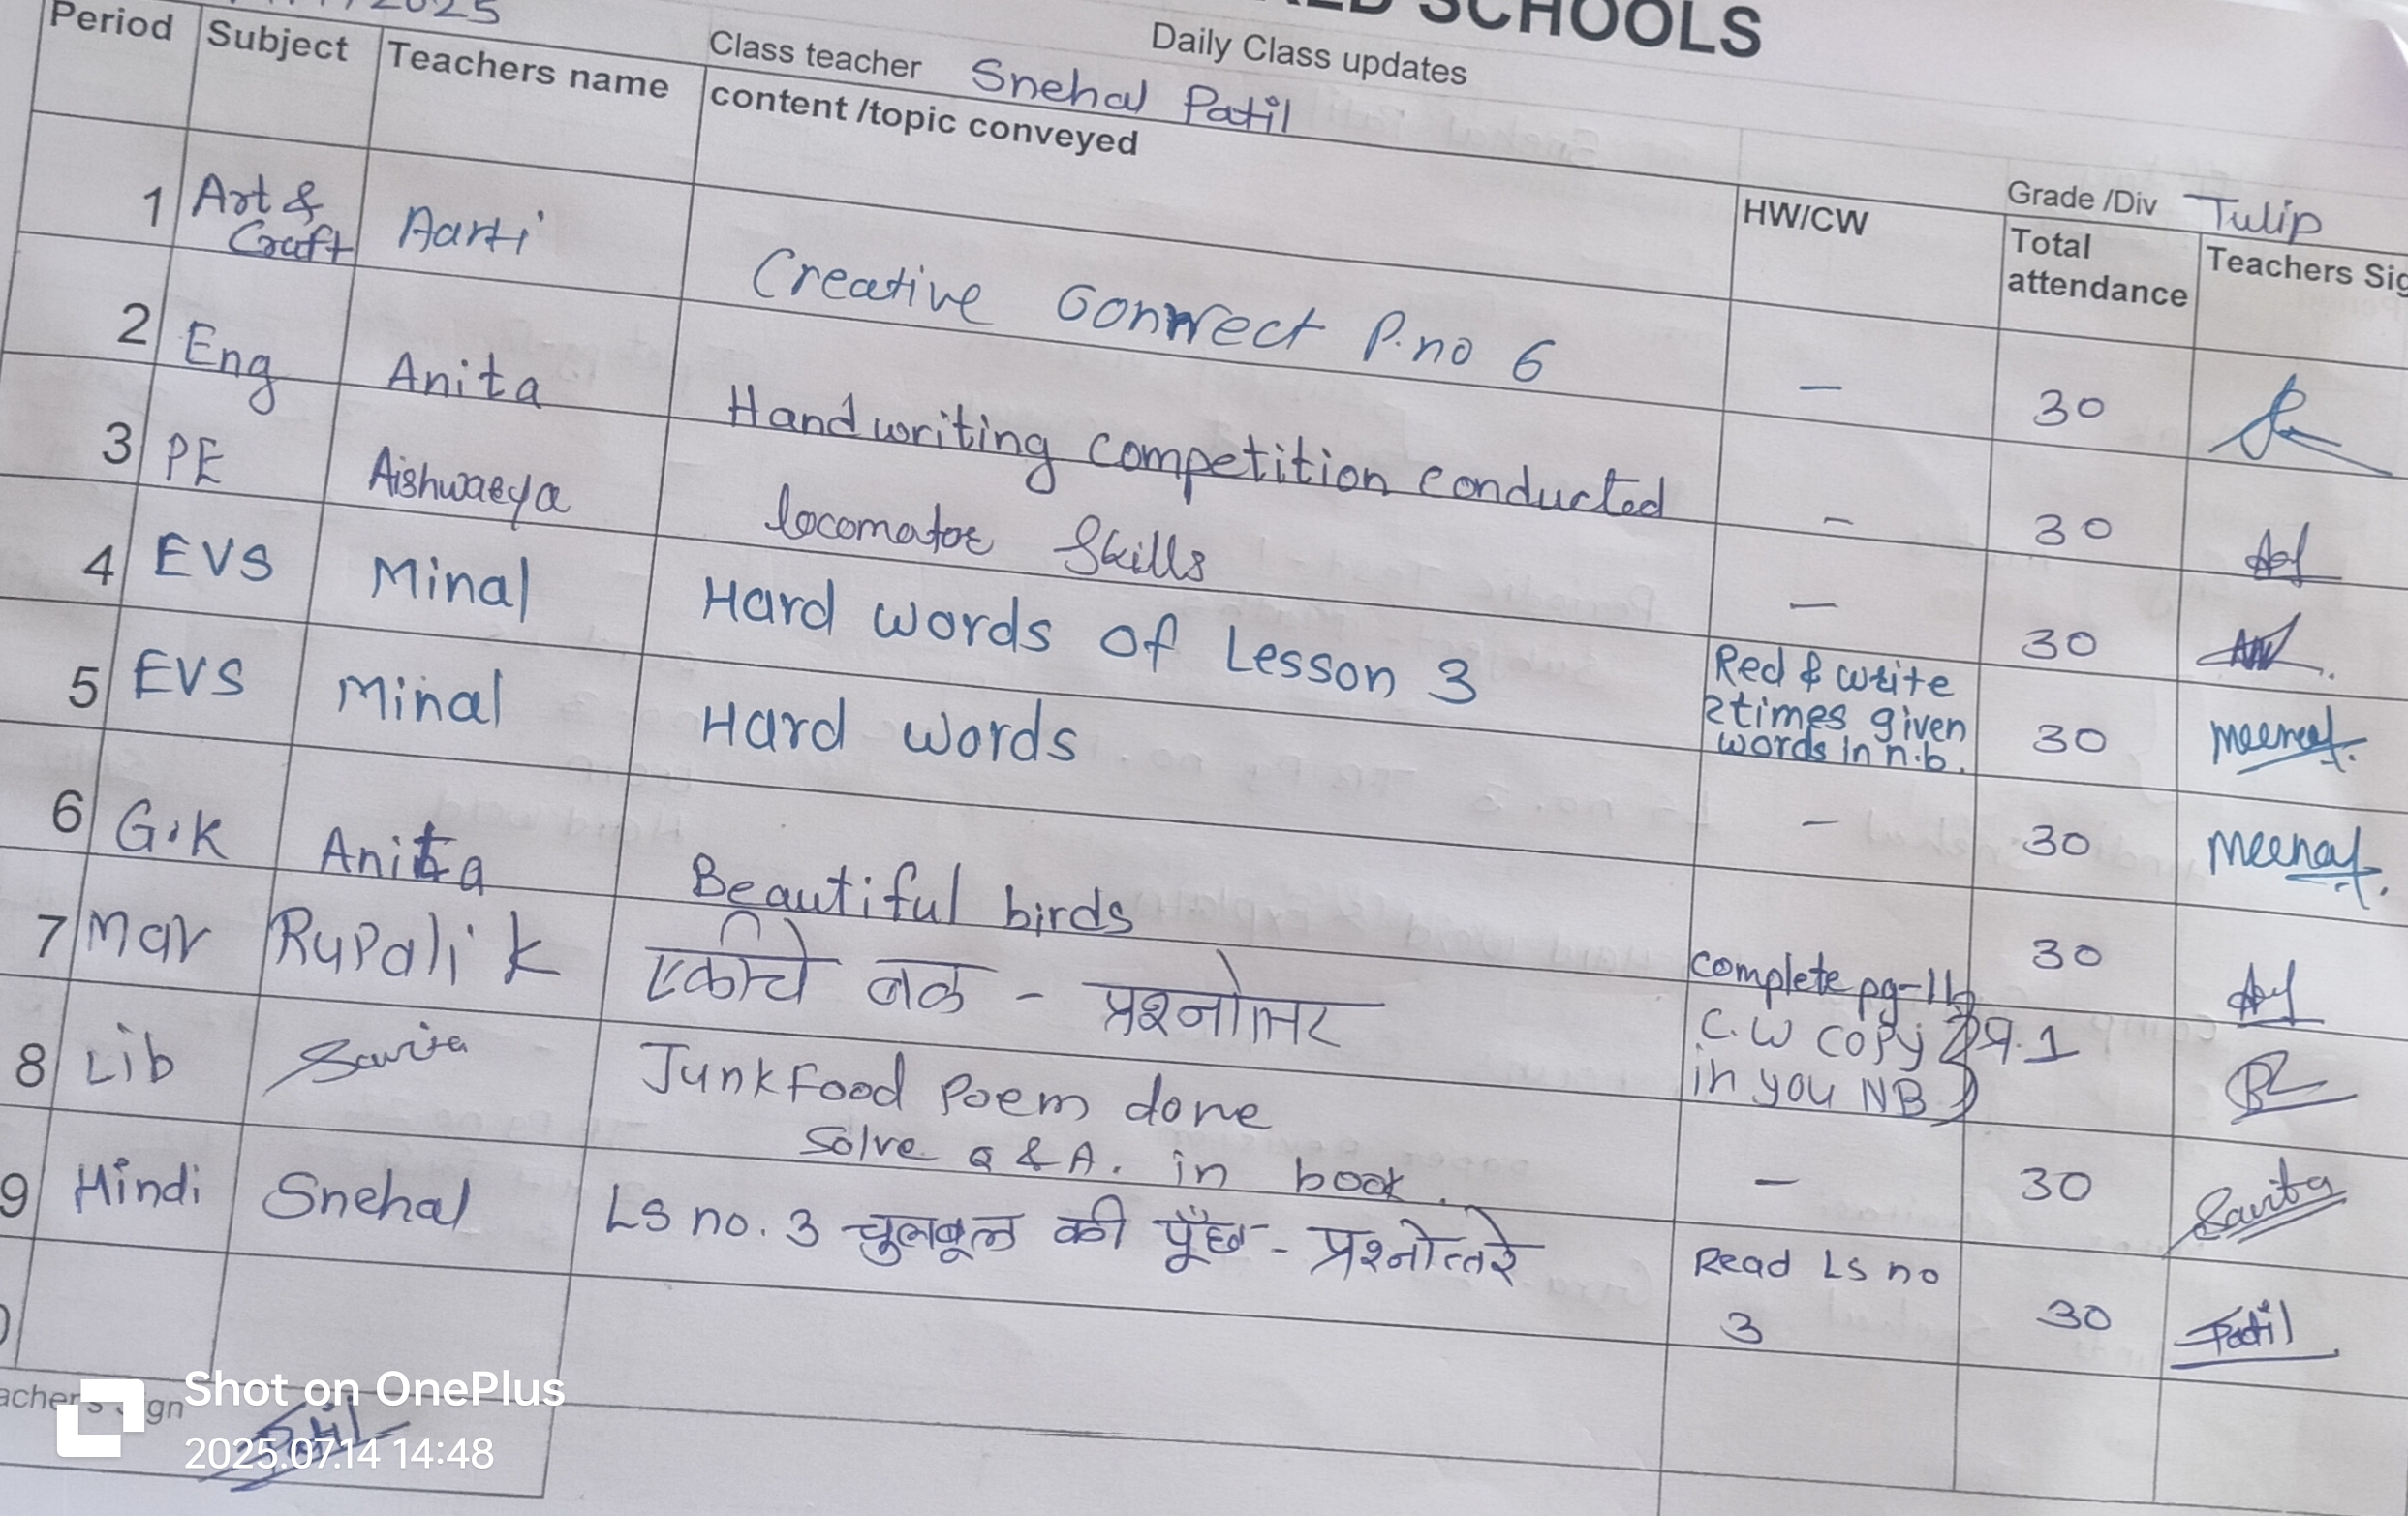 2025
SCHOOLS
Daily Class updates
Class teacher Snehal Patil
Grade /Div Tulip
Period Subject Teachers name content /topic conveyed HW/CW Total attendance Teachers
1 Art & Craft Aarti Creative Connect P.no 6 — 30
2 Eng Anita Handwriting competition conducted — 30
3 PE Aishwarya locomotor Skills — 30
4 EVS Minal Hard words of Lesson 3 Red & write 2times given words in n.b. 30
5 EVS Minal Hard words — 30
6 G.K Anita Beautiful birds complete pg-11 30
7 Mar Rupali K एकीचे बळ - प्रश्नोत्तर C.W copy in you NB
8 Lib Savita Junk Food Poem done — 30 Savita
Solve Q & A. in book.
9 Hindi Snehal Ls no. 3 चुलबूल की पूँछ - प्रश्नोत्तरे Read Ls no 3 30 Patil
Shot on OnePlus
2025.07.14 14:48